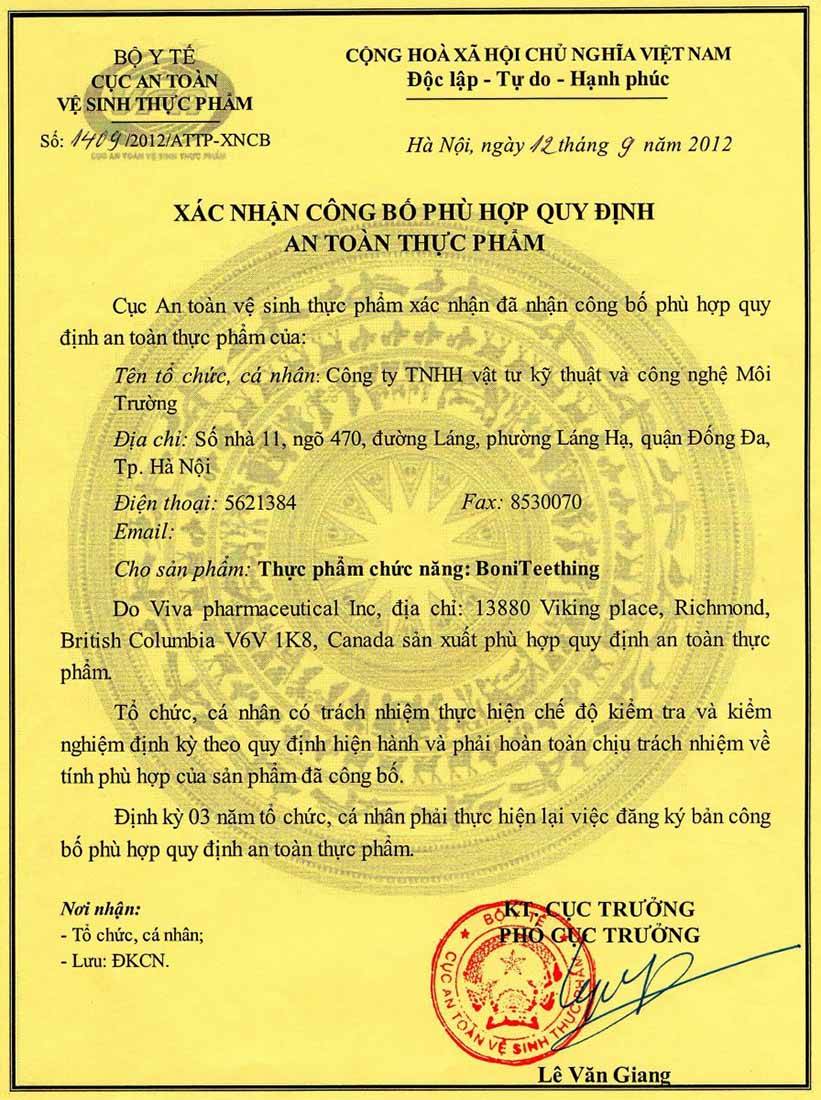 BỘ Y TẾ
CỤC AN TOÀN
VỆ SINH THỰC PHẨM
Số: 1409/2012/ATTP-XNCB
CỤC AN TOÀN VỆ SINH THỰC PHẨM
CỘNG HOÀ XÃ HỘI CHỦ NGHĨA VIỆT NAM
Độc lập - Tự do - Hạnh phúc
Hà Nội, ngày 12 tháng 9 năm 2012
XÁC NHẬN CÔNG BỐ PHÙ HỢP QUY ĐỊNH
AN TOÀN THỰC PHẨM
Cục An toàn vệ sinh thực phẩm xác nhận đã nhận công bố phù hợp quy
định an toàn thực phẩm của:
Tên tổ chức, cá nhân: Công ty TNHH vật tư kỹ thuật và công nghệ Môi
Trường
Địa chỉ: Số nhà 11, ngõ 470, đường Láng, phường Láng Hạ, quận Đống Đa,
Tp. Hà Nội
Điện thoại: 5621384 Fax: 8530070
Email:
Cho sản phẩm: Thực phẩm chức năng: BoniTeething
Do Viva pharmaceutical Inc, địa chỉ: 13880 Viking place, Richmond,
British Columbia V6V 1K8, Canada sản xuất phù hợp quy định an toàn thực
phẩm.
Tổ chức, cá nhân có trách nhiệm thực hiện chế độ kiểm tra và kiểm
nghiệm định kỳ theo quy định hiện hành và phải hoàn toàn chịu trách nhiệm về
tính phù hợp của sản phẩm đã công bố.
Định kỳ 03 năm tổ chức, cá nhân phải thực hiện lại việc đăng ký bản công
bố phù hợp quy định an toàn thực phẩm.
Nơi nhận:
- Tổ chức, cá nhân;
- Lưu: ĐKCN.
KT. CỤC TRƯỞNG
PHÓ CỤC TRƯỞNG
BỘ Y TẾ
CỤC AN TOÀN VỆ SINH THỰC PHẨM
Lê Văn Giang